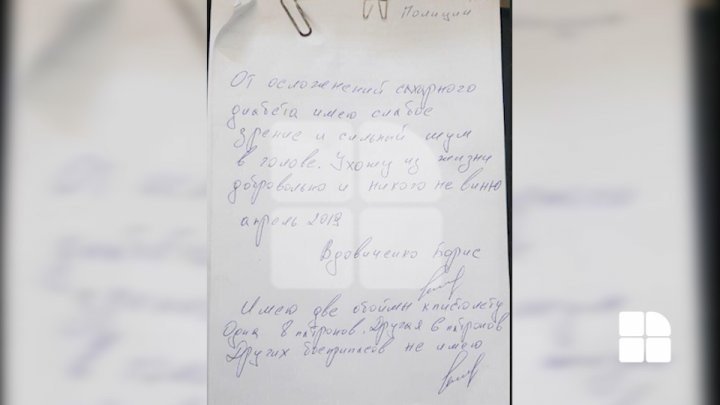 Полиции
От осложнений сахарного
диабета имею слабое
зрение и сильный шум
в голове. Ухожу из жизни
добровольно и никого не виню
апрель 2019
Вдовиченко Борис
Имею две обоймы к пистолету
Одна 8 патронов. Другая 8 патронов
Других боеприпасов не имею